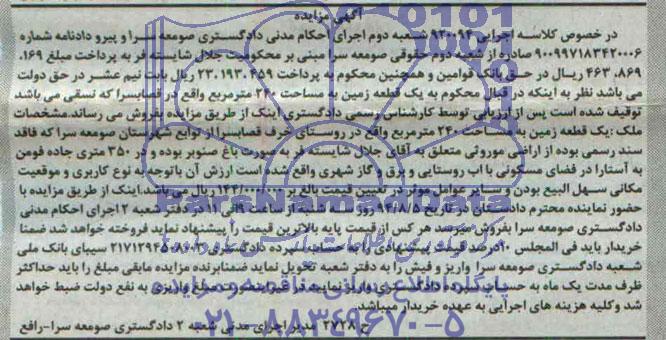 آگهی مزایده
در خصوص کلاسه اجرایی ۹۲۰۰۹۴ شعبه دوم اجرای احکام مدنی دادگستری صومعه سرا و پیرو دادنامه شماره
۹۰۰۹۹۷۱۸۳۴۲۰۰۰۶ صادره از شعبه دوم حقوقی صومعه سرا مبنی بر محکومیت جلال شایسته فر به پرداخت مبلغ ۱۶۹.
۸۶۹. ۴۶۳ ریال در حق بانک قوامین و همچنین محکوم به پرداخت ۲۳.۱۹۳.۴۵۹ ریال بابت نیم عشر در حق دولت
می باشد نظر به اینکه در قبال محکوم به یک قطعه زمین به مساحت ۲۴۰ مترمربع واقع در قصابسرا که نسقی می باشد
توقیف شده است پس از ارزیابی توسط کارشناس رسمی دادگستری اینک از طریق مزایده بفروش می رساند.مشخصات
ملک :یک قطعه زمین به مساحت ۲۴۰ مترمربع واقع در روستای خرف قصابسرا از توابع شهرستان صومعه سرا که فاقد
سند رسمی بوده از اراضی موروثی متعلق به آقای جلال شایسته فر به صورت باغ صنوبر بوده و در ۳۵۰ متری جاده فومن
به آستارا در فضای مسکونی با آب روستایی و برق و گاز شهری واقع شده است ارزش آن باتوجه به نوع کاربری و موقعیت
مکانی سهل البیع بودن و سایر عوامل موثر در تعیین قیمت بالغ بر ۱۴۴/۰۰۰/۰۰۰ ریال می باشد.اینک از طریق مزایده با
حضور نماینده محترم دادستان در تاریخ ۹۴/۸/۵ روز سه شنبه از ساعت ۹ الی ۱۱ در دفتر شعبه ۲ اجرای احکام مدنی
دادگستری صومعه سرا بفروش میرسد هر کس از قیمت پایه بالاترین قیمت را پیشنهاد نماید فروخته خواهد شد ضمنا
خریدار باید فی المجلس ۱۰درصد قیمت پیشنهادی را به حساب سپرده دادگستری ۲۱۷۱۲۹۴۵۰۸۰۰۳ سیبای بانک ملی
شعبه دادگستری صومعه سرا واریز و فیش را به دفتر شعبه تحویل نماید ضمنابرنده مزایده مابقی مبلغ را باید حداکثر
ظرف مدت یک ماه به حساب سپرده دادگستری واریز نماید در غیراینصورت مبلغ واریزی به نفع دولت ضبط خواهد
شد وکلیه هزینه های اجرایی به عهده خریدار میباشد.
ح ۲۷۲۸ مدیر اجرای مدنی شعبه ۲ دادگستری صومعه سرا-رافع
ParsNamadData
پایگاه اطلاع رسانی مناقصه و مزایده
۰۲۱-۸۸۳۴۹۶۷۰-۵